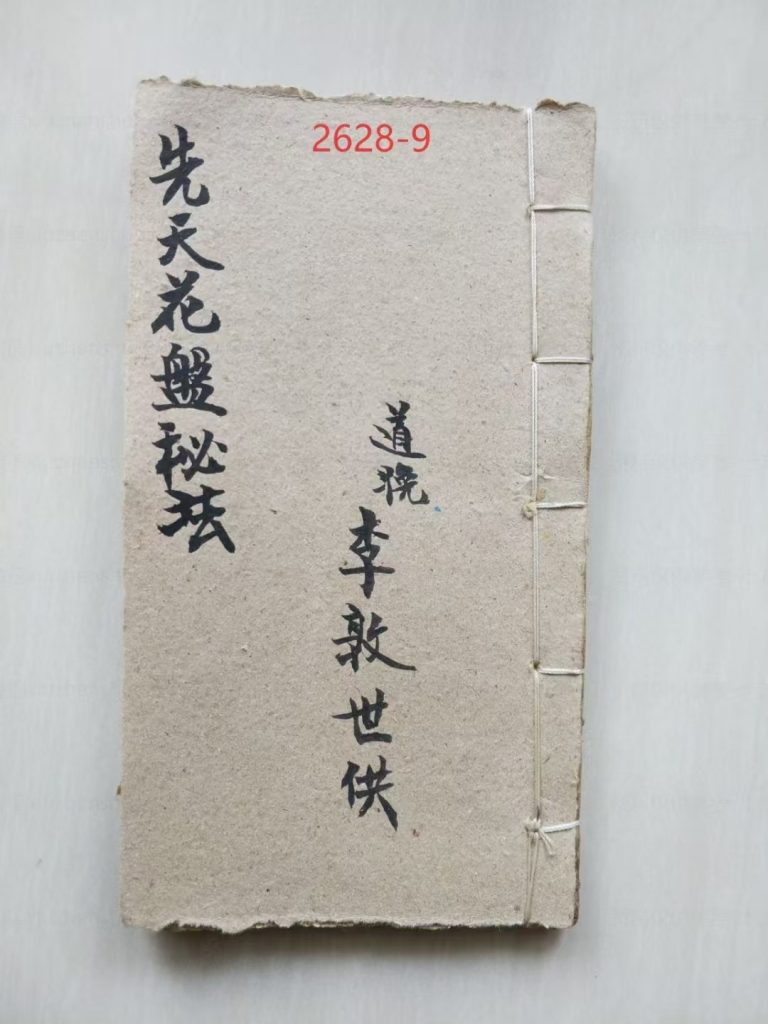 2628-9
先天花盤秘法
道晚
李敦世供